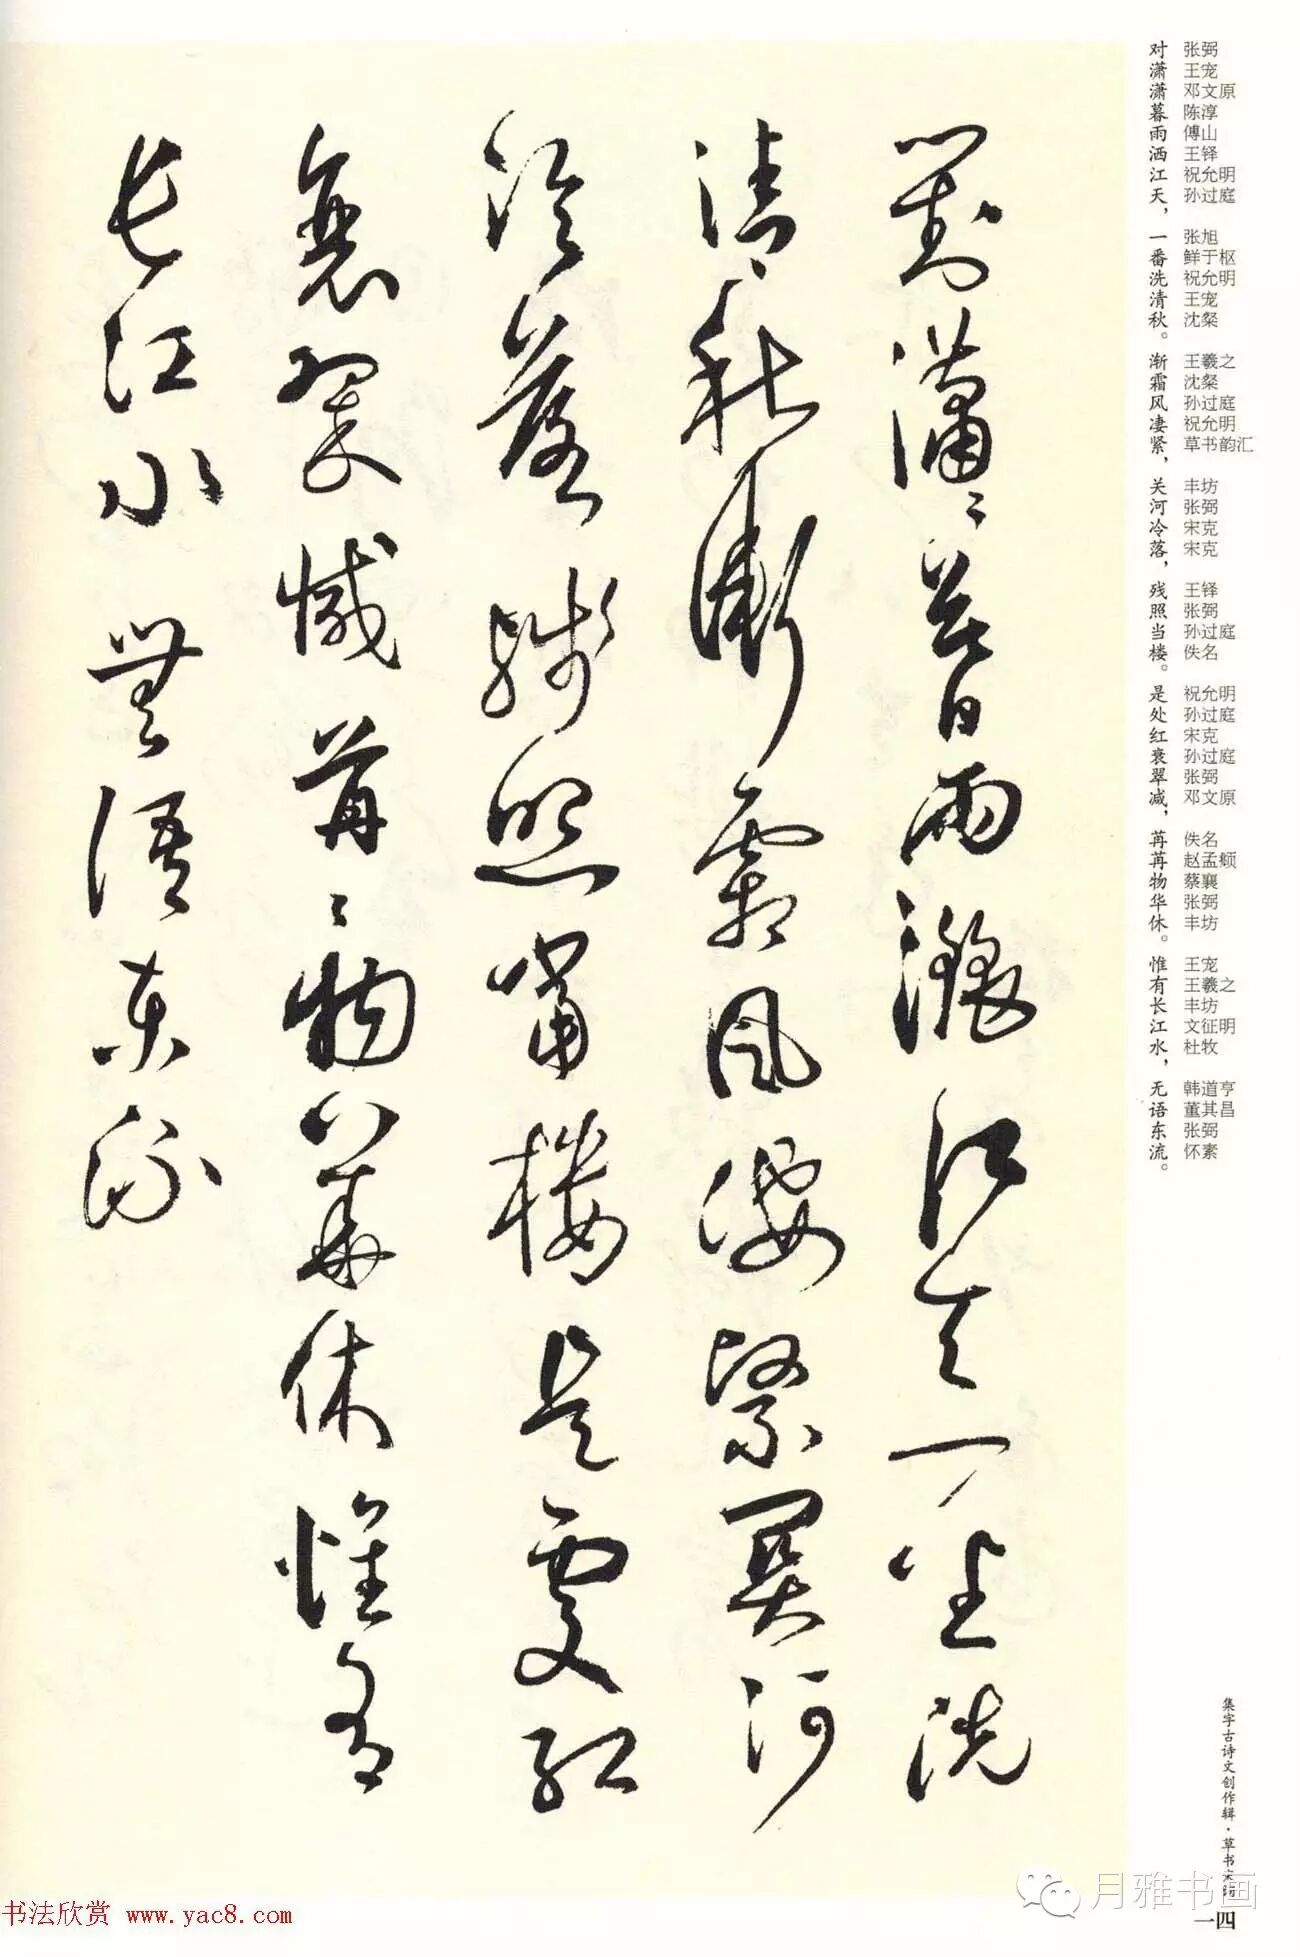 对 张弼
潇 王宠
潇 邓文原
暮 陈淳
雨 傅山
洒 王铎
江 祝允明
天， 孙过庭
一 张旭
番 鲜于枢
洗 祝允明
清 王宠
秋。 沈粲
渐 王羲之
霜 沈粲
风 孙过庭
凄 祝允明
紧， 草书韵汇
关 丰坊
河 张弼
冷 宋克
落， 宋克
残 王铎
照 张弼
当 孙过庭
楼。 佚名
是 祝允明
处 孙过庭
红 宋克
衰 孙过庭
翠 张弼
减， 邓文原
苒 佚名
苒 赵孟頫
物 蔡襄
华 张弼
休。 丰坊
惟 王宠
有 王羲之
长 丰坊
江 文征明
水， 杜牧
无 韩道亨
语 董其昌
东 张弼
流。 怀素
對瀟々暮雨灑江天一番洗
清秋漸霜風淒緊關河
冷落殘照當樓是處紅
衰翠減苒々物華休惟有
長江水無語東流
集字古诗文创作辑·草书宋词
一四
月雅书画
书法欣赏 www.yac8.com